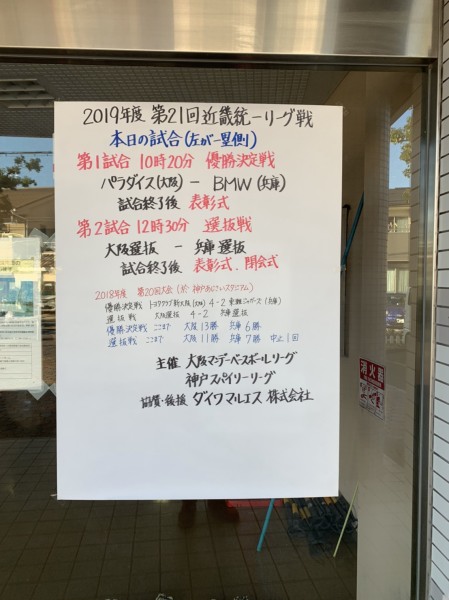 2019年度 第21回近畿統一リーグ戦
本日の試合(左が一塁側)
第1試合 10時20分 優勝決定戦
パラダイス(大阪) － BMW(兵庫)
試合終了後 表彰式
第2試合 12時30分 選抜戦
大阪選抜 － 兵庫選抜
試合終了後 表彰式、閉会式
2018年度 第20回大会(於 神戸あじさいスタジアム)
優勝決定戦 トヨタクラブ新大阪(大阪) 4-2 東灘(兵庫)
選抜戦 大阪選抜 4-2 兵庫選抜
優勝決定戦 ここまで 大阪13勝 兵庫6勝
選抜戦 ここまで 大阪11勝 兵庫7勝 中止1回
主催 大阪マンデーベースボールリーグ
神戸スパイリーリーグ
協賛・後援 ダイワマルエス株式会社
消火器